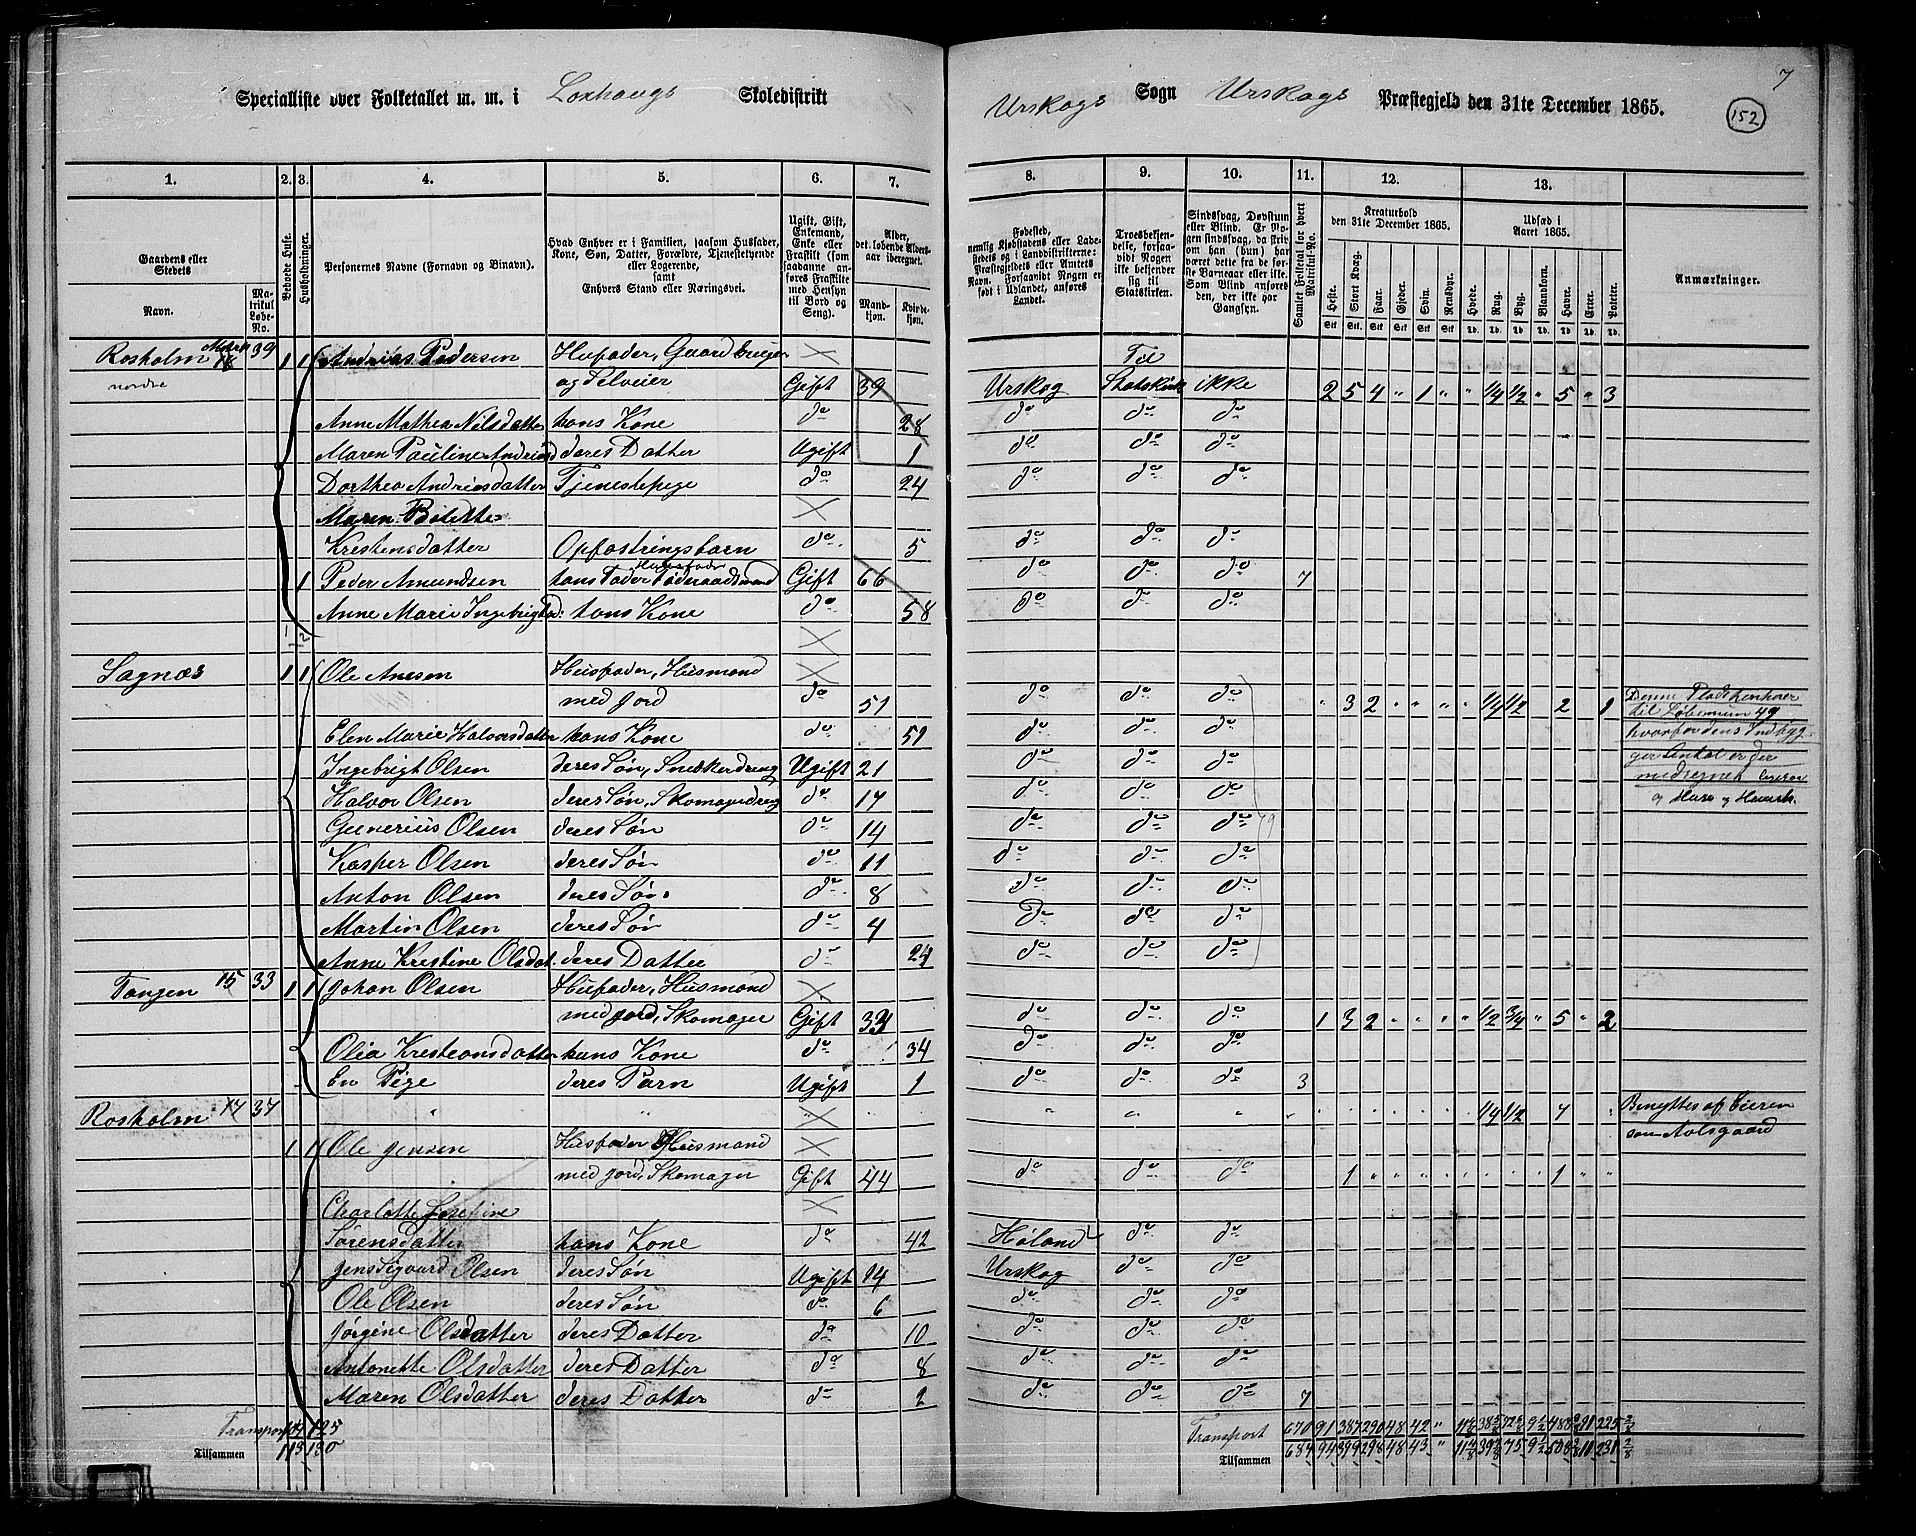 7
152
Specialliste over Folketallet m. m. i Loxhougs Skoledistrikt
Urskogs Sogn Urskogs Præstegjeld den 31te December 1865.
1. 2. 3. 4. 5. 6. 7. 8. 9. 10. 11. 12. 13.
Gaardens eller Stedets
Navn.
Matrikul Løbe-No.
Beboede Huse.
Husholdninger.
Personernes Navne (Fornavn og Binavn).
Hvad Enhver er i Familien, saasom Husfader,
Kone, Søn, Datter, Forældre, Tjenestetyende
eller Logerende,
samt
Enhvers Stand eller Næringsvei.
Ugift, Gift,
Enkemand,
Enke eller
Fraskilt (som
saadanne anføres Fraskilte
med Hensyn
til Bord og
Seng).
Alder,
det løbende Alders-
aar iberegnet.
Mandkjøn.
Kvindekjøn.
Fødested,
nemlig Kjøbstadens eller Ladestedets og i Landdistrikterne:
Præstegjeldets eller Amtets
Navn. Forsaavidt Nogen er
født i Udlandet, anføres
Landet.
Troesbekjendelse, forsaavidt Nogen
ikke bekjender
sig til
Statskirken.
Sindssvag, Døvstum
eller Blind. Er Nogen sindssvag, da skrives om
han (hun) har
været dette fra de første Barneaar eller ikke.
Som Blind anføres
den, der ikke har
Gangsyn.
Samlet Folketal for hvert Matrikul-No.
Kreaturhold
den 31te December 1865.
Heste. Stort Kvæg. Faar. Gjeder. Svin. Rensdyr.
Udsæd i
Aaret 1865.
Hvede. Rug. Byg. Blandkorn. Havre. Erter. Poteter.
Anmærkninger.
Rosholm 39 1 1 Andrias Pedersen Husfader, Gaardbruger Til
nordre og Selveier Gift 39 Urskog Statskirk ikke 2 5 4 " 1 " " 1/4 1/2 " 5 " 3
Anne Mathea Nilsdatter hans Kone do 28 do do do
Maren Pauline Andriasd deres Datter Ugift 1 do do do
Dorthea Andriasdatter Tjenestepige do 24 do do do
Maren Bolette
Kristensdatter Opfostringsbarn do 5 do do do
1 Peder Amundsen hans Fader Husfader Føderaadsmand Gift 66 do do do 7
Anne Marie Ingebrigtsd: hans Kone do 58 do do do
Sagnæs 1 1 Ole Anesen Husfader, Husmand
med jord do 51 do do do " 3 2 " " " " 1/4 1/2 " 2 " 1
Elen Marie Halvorsdatter hans Kone do 51 do do do
Ingebrigt Olsen deres Søn, Snedkerdreng Ugift 21 do do do
Halvor Olsen deres Søn, Skomagerdreng do 17 do do do
Gunerius Olsen deres Søn do 14 do do do
Kasper Olsen deres Søn do 11 do do do
Anton Olsen deres Søn do 8 do do do
Martin Olsen deres Søn do 4 do do do
Anne Kristine Olsdat. deres Datter do 24 do do do
Denne Plads henhører
til Løbenum 49
hvorfor dens Indbyg-
ger Antal er der
medregnet
og Huus og Huush.
Tangen 15 33 1 1 Johan Olsen Husfader, Husmand
med jord, Skomager Gift 33 do do do 1 3 2 " " " " 1/2 3/4 " 5 " 2
Olia Kristiansdatter hans Kone do 34 do do do
En Pige deres Barn Ugift 1 do do do 3
Rosholm 17 37 1/4 1/2 Benyttes af Eieren
som Avlsgaard
1 1 Ole Jensen Husfader Husmand
med jord, Skomager Gift 44 do do do 1 1
Charlotte Josefine
Sørensdatter hans Kone do 42 Høland do do
Jens Sigvard Olsen deres Søn Ugift 14 Urskog do do
Ole Olsen deres Søn do 6 do do do
Jørgine Olsdatter deres Datter do 10 do do do
Antonette Olsdatter deres Datter do 8 do do do
Maren Olsdatter deres Datter do 2 do do do 7
Transport 125 Transport 670 91 387 290 48 42
Tilsammen 113 130 Tilsammen 687 94 399 298 48 43